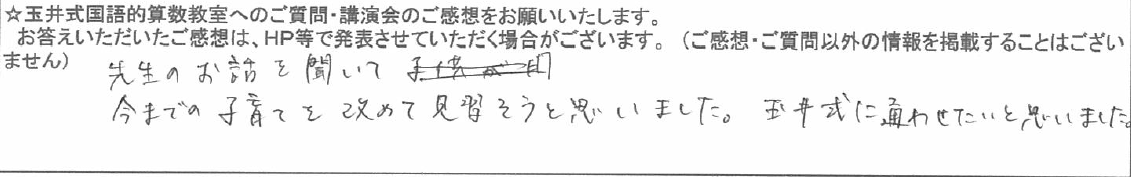 ☆玉井式国語的算数教室へのご質問・講演会のご感想をお願いいたします。
お答えいただいたご感想は、HP等で発表させていただく場合がございます。（ご感想・ご質問以外の情報を掲載することはござい
ません）
先生のお話を聞いて
今までの子育てを改めて見習そうと思いました。玉井式に通わせたいと思いました。